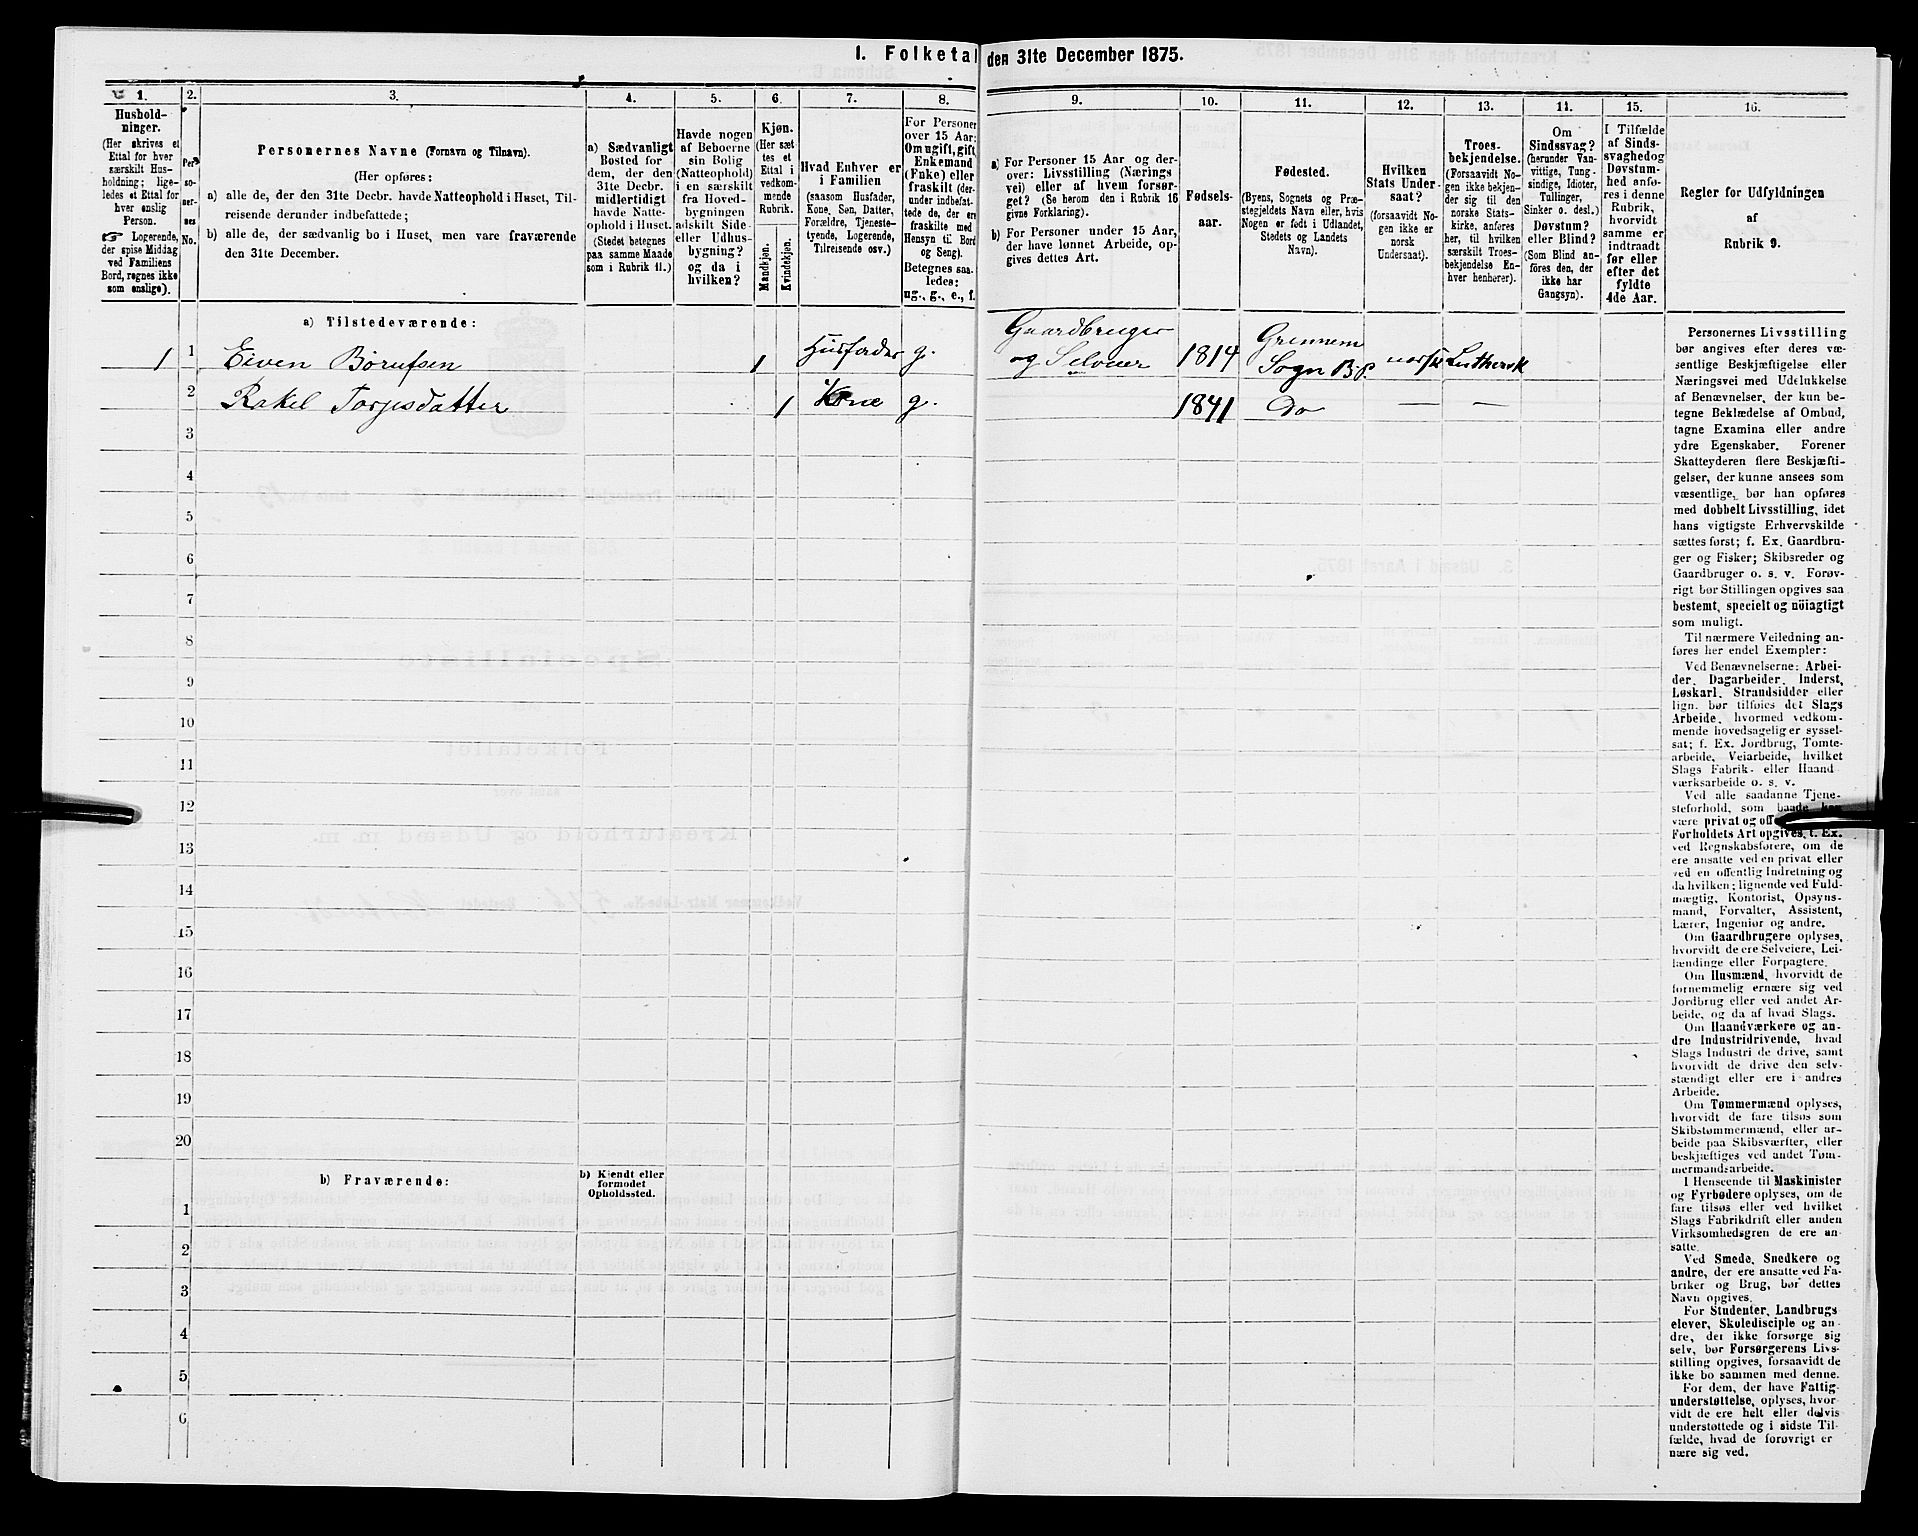 1. Folketal den 31te December 1875.
1. 2. 3. 4. 5. 6. 7. 8. 9. 10. 11. 12. 13. 14. 15. 16.
Hushold-
ninger.
(Her skrives et
Ettal for hver
særskilt Hus-
holdning; lige-
ledes et Ettal for
hver enslig
Person.
☞ Logerende,
der spise Middag
ved Familiens
Bord, regnes ikke
som enslige).
Per-
so-
ner-
nes
No.
Personernes Navne (Fornavn og Tilnavn).
(Her opføres:
a) alle de, der den 31te Decbr. havde Natteophold i Huset, Til-
reisende derunder indbefattede;
b) alle de, der sædvanlig bo i Huset, men vare fraværende
den 31te December.
a) Sædvanligt
Bosted for
dem, der den
31te Decbr.
midlertidigt
havde Natte-
ophold i Huset.
(Stedet betegnes
paa samme Maade
som i Rubrik 11.)
Havde nogen
af Beboerne
sin Bolig
(Natteophold)
i en særskilt
fra Hoved-
bygningen
adskilt Side-
eller Udhus-
bygning?
og da i
hvilken?
Kjøn.
(Her sæt-
tes et
Ettal i
vedkom-
mende
Rubrik.
Mandkjøn.
Kvindekjøn.
Hvad Enhver er
i Familien
(saasom Husfader,
Kone, Søn, Datter,
Forældre, Tjeneste-
tyende, Logerende,
Tilreisende osv.)
For Personer
over 15 Aar:
Om ugift, gift,
Enkemand
(Enke) eller
fraskilt (der-
under indbefat-
tede de, der ere
fraskilte med
Hensyn til Bord
og Seng).
Betegnes saa-
ledes:
ug., g., e., f.
a) For Personer 15 Aar og der-
over: Livsstilling (Nærings-
vei) eller af hvem forsør-
get? (Se herom i Rubrik 16
givne Forklaring).
b) For Personer under 15 Aar,
der have lønnet Arbeide, op-
gives dettes Art.
Fødsels-
aar.
Fødested.
(Byens, Sognets og Præ-
stegjeldets Navn eller, hvis
Nogen er født i Udlandet,
Stedets og Landets
Navn).
Hvilken
Stats Under-
saat?
(forsaavidt No-
gen ikke er
norsk
Undersaat).
Troes-
bekjendelse.
(Forsaavidt No-
gen ikke bekjen-
der sig til den
norske Stats-
kirke, anføres
her, til hvilken
særskilt Troes-
bekjendelse En-
hver henhører).
Om
Sindssvag?
(herunder Van-
vittige, Tung-
sindige, Idioter,
Tullinger,
Sinker o. desl.)
Døvstum?
eller Blind?
(Som Blind an-
føres den, der
ikke har
Gangsyn).
I Tilfælde
af Sinds-
svaghed og
Døvstum-
hed anfø-
res i denne
Rubrik,
hvorvidt
samme er
indtraadt
før eller
efter det
fyldte
4de Aar.
Regler for Udfyldningen
af
Rubrik 9.
a) Tilstedeværende:
1 1 Eiven Børufsen 1 Husfader g. Gaardbruger og Selveier 1814 Grennem Sogn B.P. norsk Luthersk
2 Rakel Torjesdatter 1 Kone g. 1841 Do — —
3
4
5
6
7
8
9
10
11
12
13
14
15
16
17
18
19
20
b) Fraværende:
b) Kjendt eller
formodet
Opholdssted.
1
2
3
4
5
6
Personernes Livsstilling
bør angives efter deres væ-
sentlige Beskjæftigelse eller
Næringsvei med Udelukkelse
af Benævnelser, der kun be-
tegne Beklædelse af Ombud,
tagne Examina eller andre
ydre Egenskaber. Forener
Skatteyderen flere Beskjæfti-
gelser, der kunne ansees som
væsentlige, bør han opføres
med dobbelt Livsstilling, idet
hans vigtigste Erhvervskilde
sættes først; f. Ex. Gaardbru-
ger og Fisker; Skibsreder og
Gaardbruger o. s. v. Forøv-
rigt bør Stillingen opgives saa
bestemt, specielt og nöiagtigt
som muligt.
Til nærmere Veiledning an-
føres her endel Exempler:
Ved Benævnelserne: Arbei-
der, Dagarbeider, Inderst,
Løskarl, Strandsidder eller
lign. bør tilføies det Slags
Arbeide, hvormed vedkom-
mende hovedsagelig er syssel-
sat; f. Ex. Jordbrug, Tomte-
arbeide, Veiarbeide, hvilket
Slags Fabrik- eller Haand
værksarbeide o. s. v.
Ved alle saadanne Tjene-
steforhold, som baade kan
være privat og off
Forholdets Art opgives, f. Ex.
ved Regnskabsførere, om de
ere ansatte ved en privat eller
ved en offentlig Indretning og
da hvilken; lignende ved Fuld-
mægtig, Kontorist, Opsyns-
mand, Forvalter, Assistent,
Lærer, Ingeniør og andre.
Om Gaardbrugere oplyses,
hvorvidt de ere Selveiere, Lei-
lændinge eller Forpagtere.
Om Husmænd, hvorvidt de
fornemmelig ernære sig ved
Jordbrug eller ved andet Ar-
beide, og da af hvad Slags.
Om Haandværkere og an-
dre Industridrivende, hvad
Slags Industri de drive, samt
hvorvidt de drive den selv-
stændigt eller ere i andres
Arbeide.
Om Tømmermænd oplyses,
hvorvidt de fare tilsøs som
Skibstømmermænd, eller ar-
beide paa Skibsværfter, eller
beskjæftiges ved andet Tøm-
mermandsarbeide.
I Henseende til Maskinister
og Fyrbødere oplyses, om de
fare tilsøs eller ved hvilket
Slags Fabrikdrift eller anden
Virksomhedsgren de ere an-
satte.
Ved Smede, Snedkere og
andre, der ere ansatte ved Fa-
briker og Brug, bør dettes
Navn opgives.
For Studenter, Landbrugs
elever, Skoledisciple og an-
dre, der ikke forsørge sig
selv, bør Forsørgerens Livs-
stilling opgives, forsaavidt de
ikke bo sammen med denne.
For dem, der have Fattig-
understøttelse, oplyses, hvor-
vidt de ere helt eller delvis
understøttede og i sidste Til-
fælde, hvad de forøvrigt er
nære sig ved.